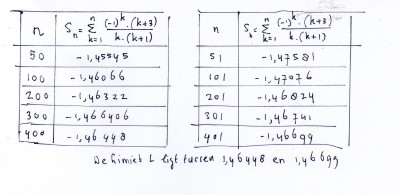 n | S_n = Σ_{k=1}^{n} (-1)^k · (k+3) / k · (k+1)
50 | -1,45545
100 | -1,46066
200 | -1,46322
300 | -1,466406
400 | -1,46448
n | S_n = Σ_{k=1}^{n} (-1)^k · (k+3) / k · (k+1)
51 | -1,47581
101 | -1,47076
201 | -1,46824
301 | -1,46741
401 | -1,46699
De limiet L ligt tussen 1,46448 en 1,46699